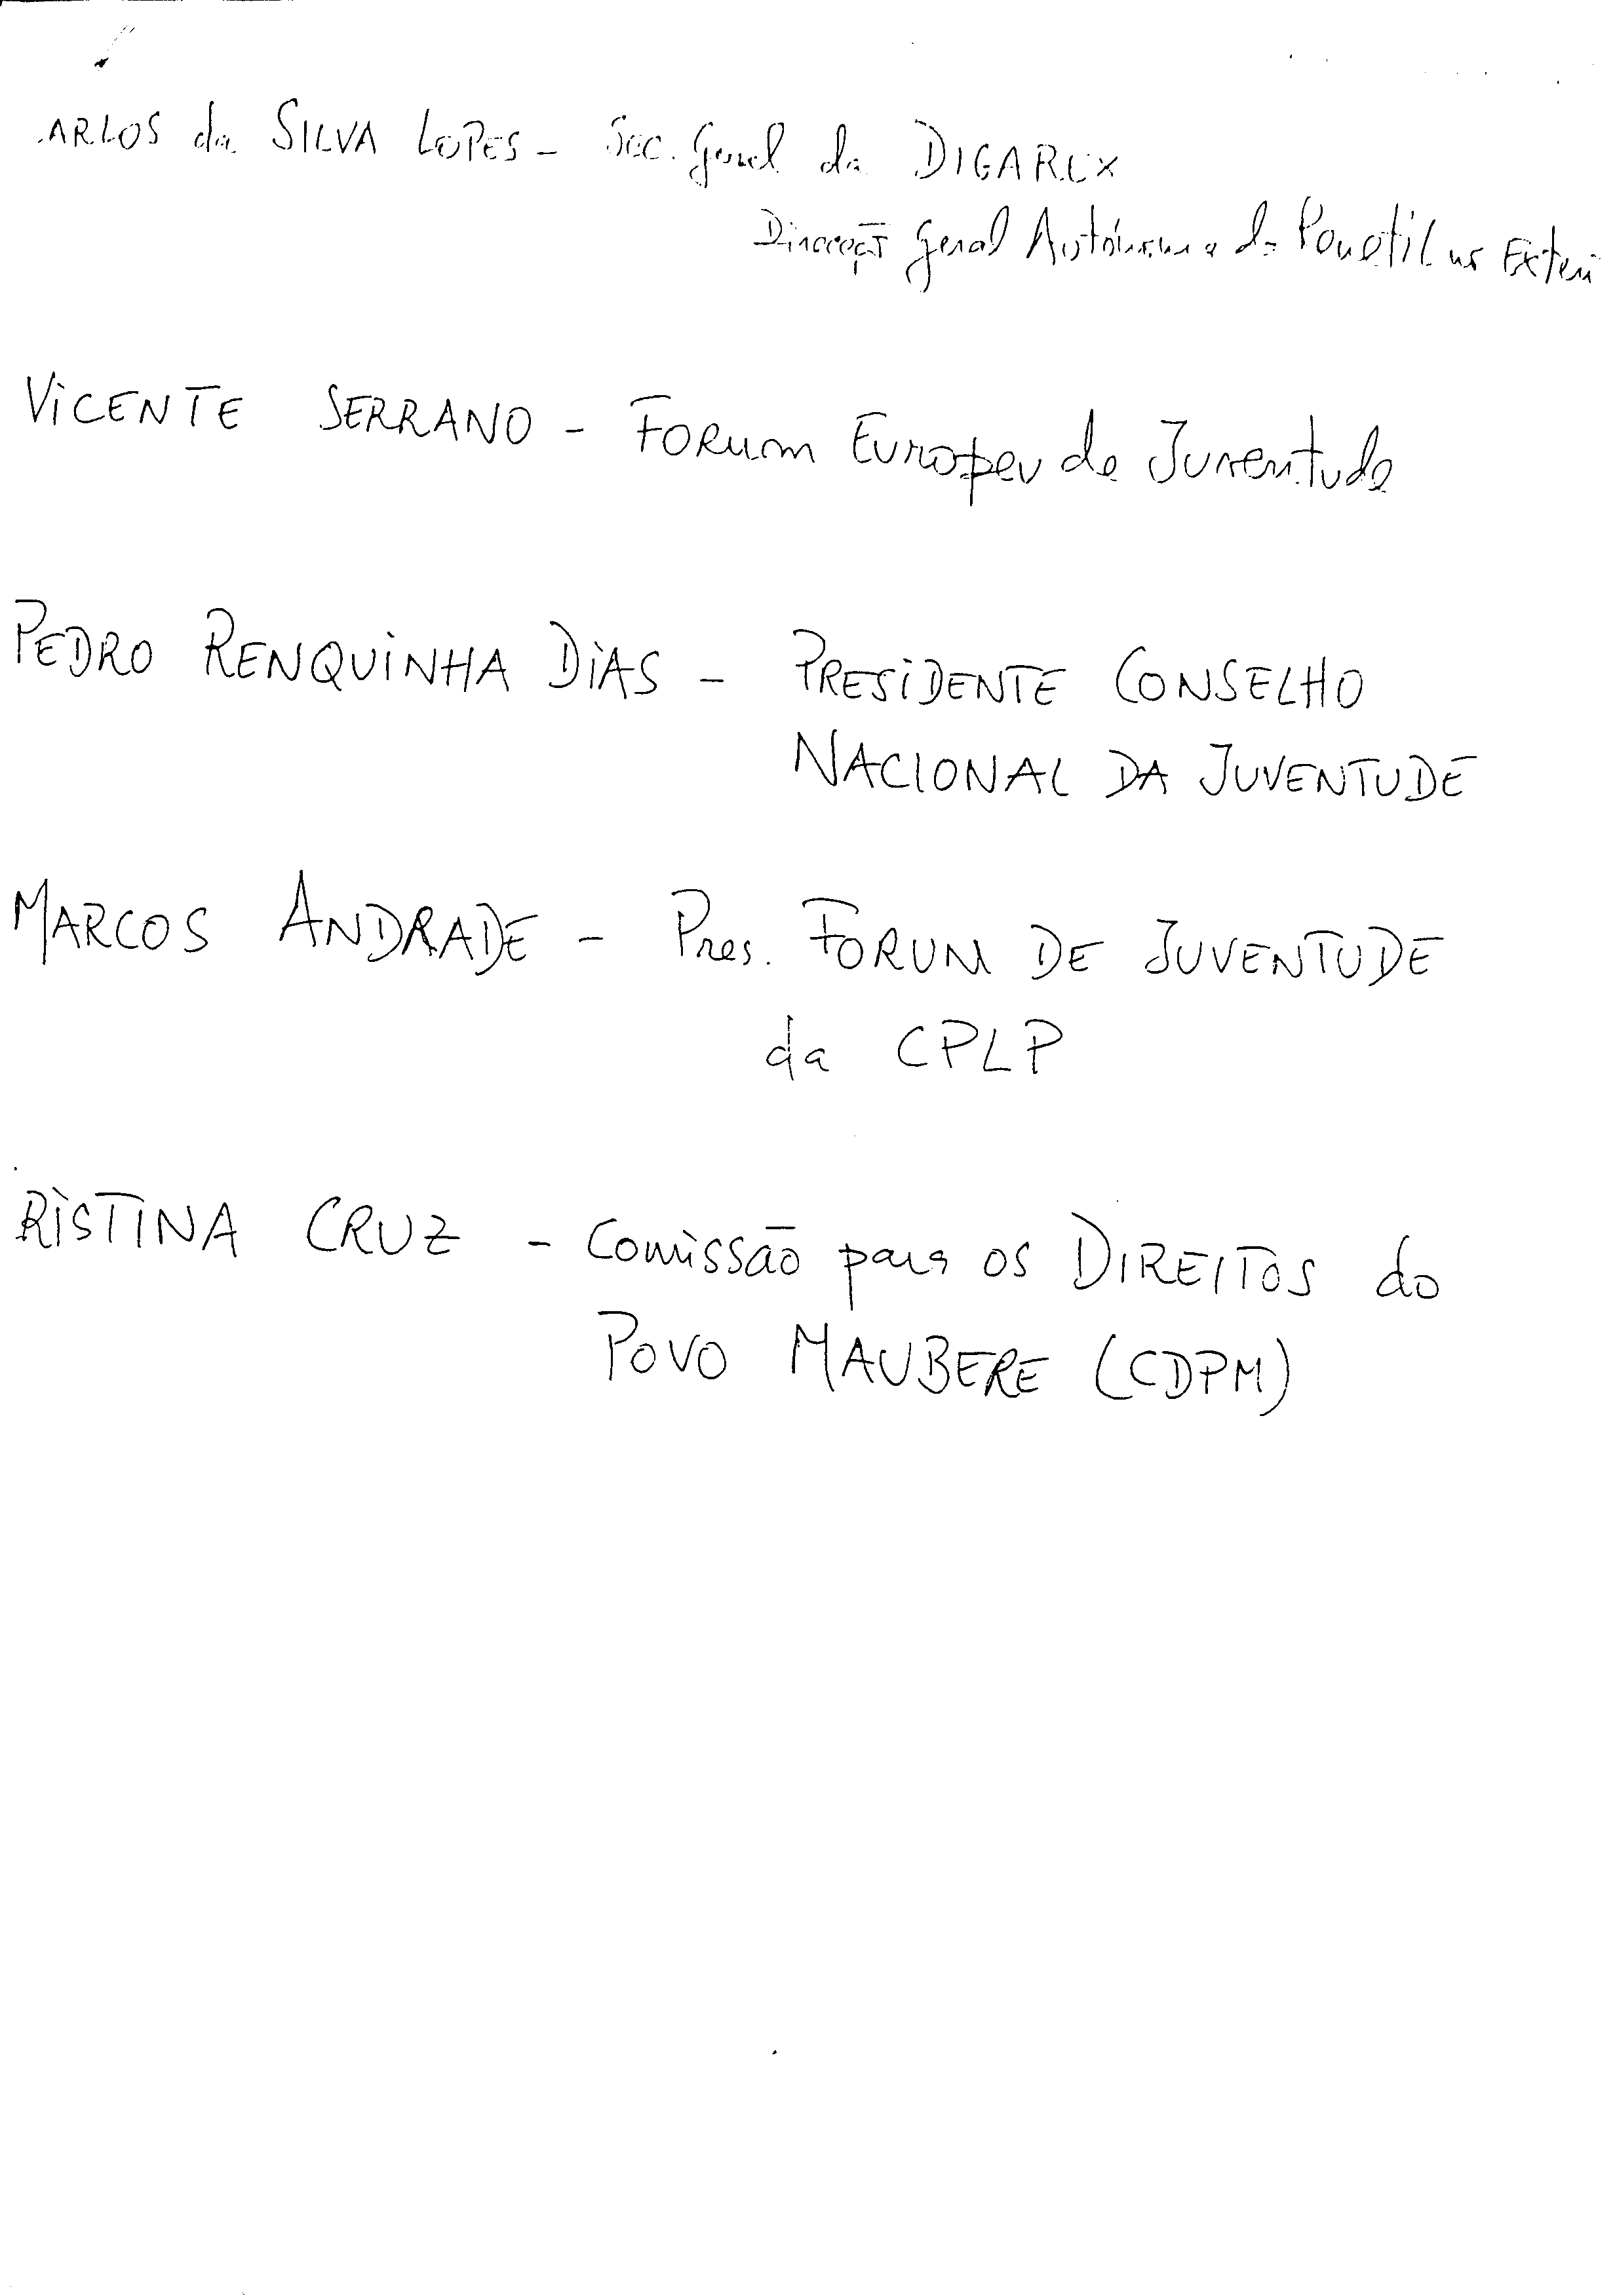 ARLOS da SILVA LOPES - Sec. Geral da DIGAREX
Direcção Geral Autónoma da Renetil no Exteri
VICENTE SERRANO - FORUM Europeu de Juventude
PEDRO RENQUINHA DIAS - PRESIDENTE CONSELHO
NACIONAL DA JUVENTUDE
MARCOS ANDRADE - Pres. FORUM DE JUVENTUDE
da CPLP
RISTINA CRUZ - Comissão para os DIREITOS do
POVO MAUBERE (CDPM)